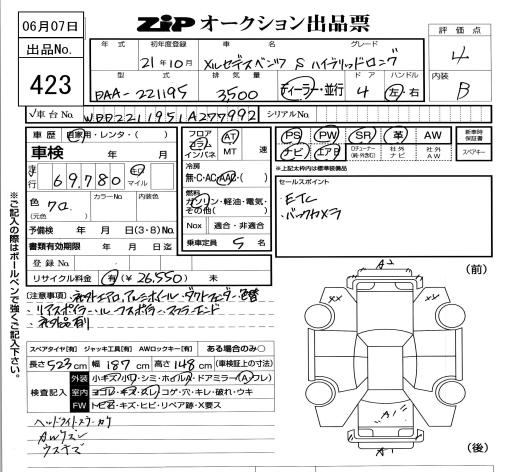 06月07日
ZIP オークション出品票
出品No.
423
年 式 初年度登録 車 名 グレード
21年10月 メルセデスベンツ S ハイブリッドロング
型 式 排 気 量 ドア ハンドル
DAA-221195 3,500 ディーラー・並行 4 左・右
評 価 点
4
内装
B
車台No. WDD2211951A277992 シリアルNo.
車 歴 自家用・レンタ・( )
車検 年 月
走行 69,780 キロ マイル
色 クロ (元色) カラーNo. 内装色
予備検 年 月 日(3・8)No.
書類有効期限 年 月 日迄
登録 No.
リサイクル料金 有 (¥ 26,550) 未
フロア コラム インパネ AT MT 速
冷房
無・C・AC・AAC・( )
燃料
ガソリン・軽油・電気・その他( )
Nox 適合・非適合
乗車定員 5 名
PS PW SR 革 AW 新車時保証書
ナビ エアB 社外ナビ 社外AW スペアキー
*上記太枠内は標準装備品
セールスポイント
ETC
バックカメラ
※ご記入の際はボールペンで強くご記入下さい。
[注意事項]
社外エアロ、アルミホイール・ダクトフェンダー、色替
・リアスポイラー・ルーフスポイラー・マフラーエンド
・社外品有り
スペアタイヤ[有] ジャッキ工具[有] AWロックキー[有] ある場合のみ○
長さ 523 cm 幅 187 cm 高さ 148 cm (車検証上の寸法)
検査記入
外装 小キズ・小ワ・シミ・ホイルA・ドアミラー(A・ワレ)
室内 ヨゴレ・キズ・スレ・コゲ・穴・キレ・破れ・ウキ
FW トビ石・キズ・ヒビ・リペア跡・X要ス
ヘッドライトスリ・カケ
AWクスミ
ウスキズ
(前)
A2
XX
XX
A1
A1
(後)